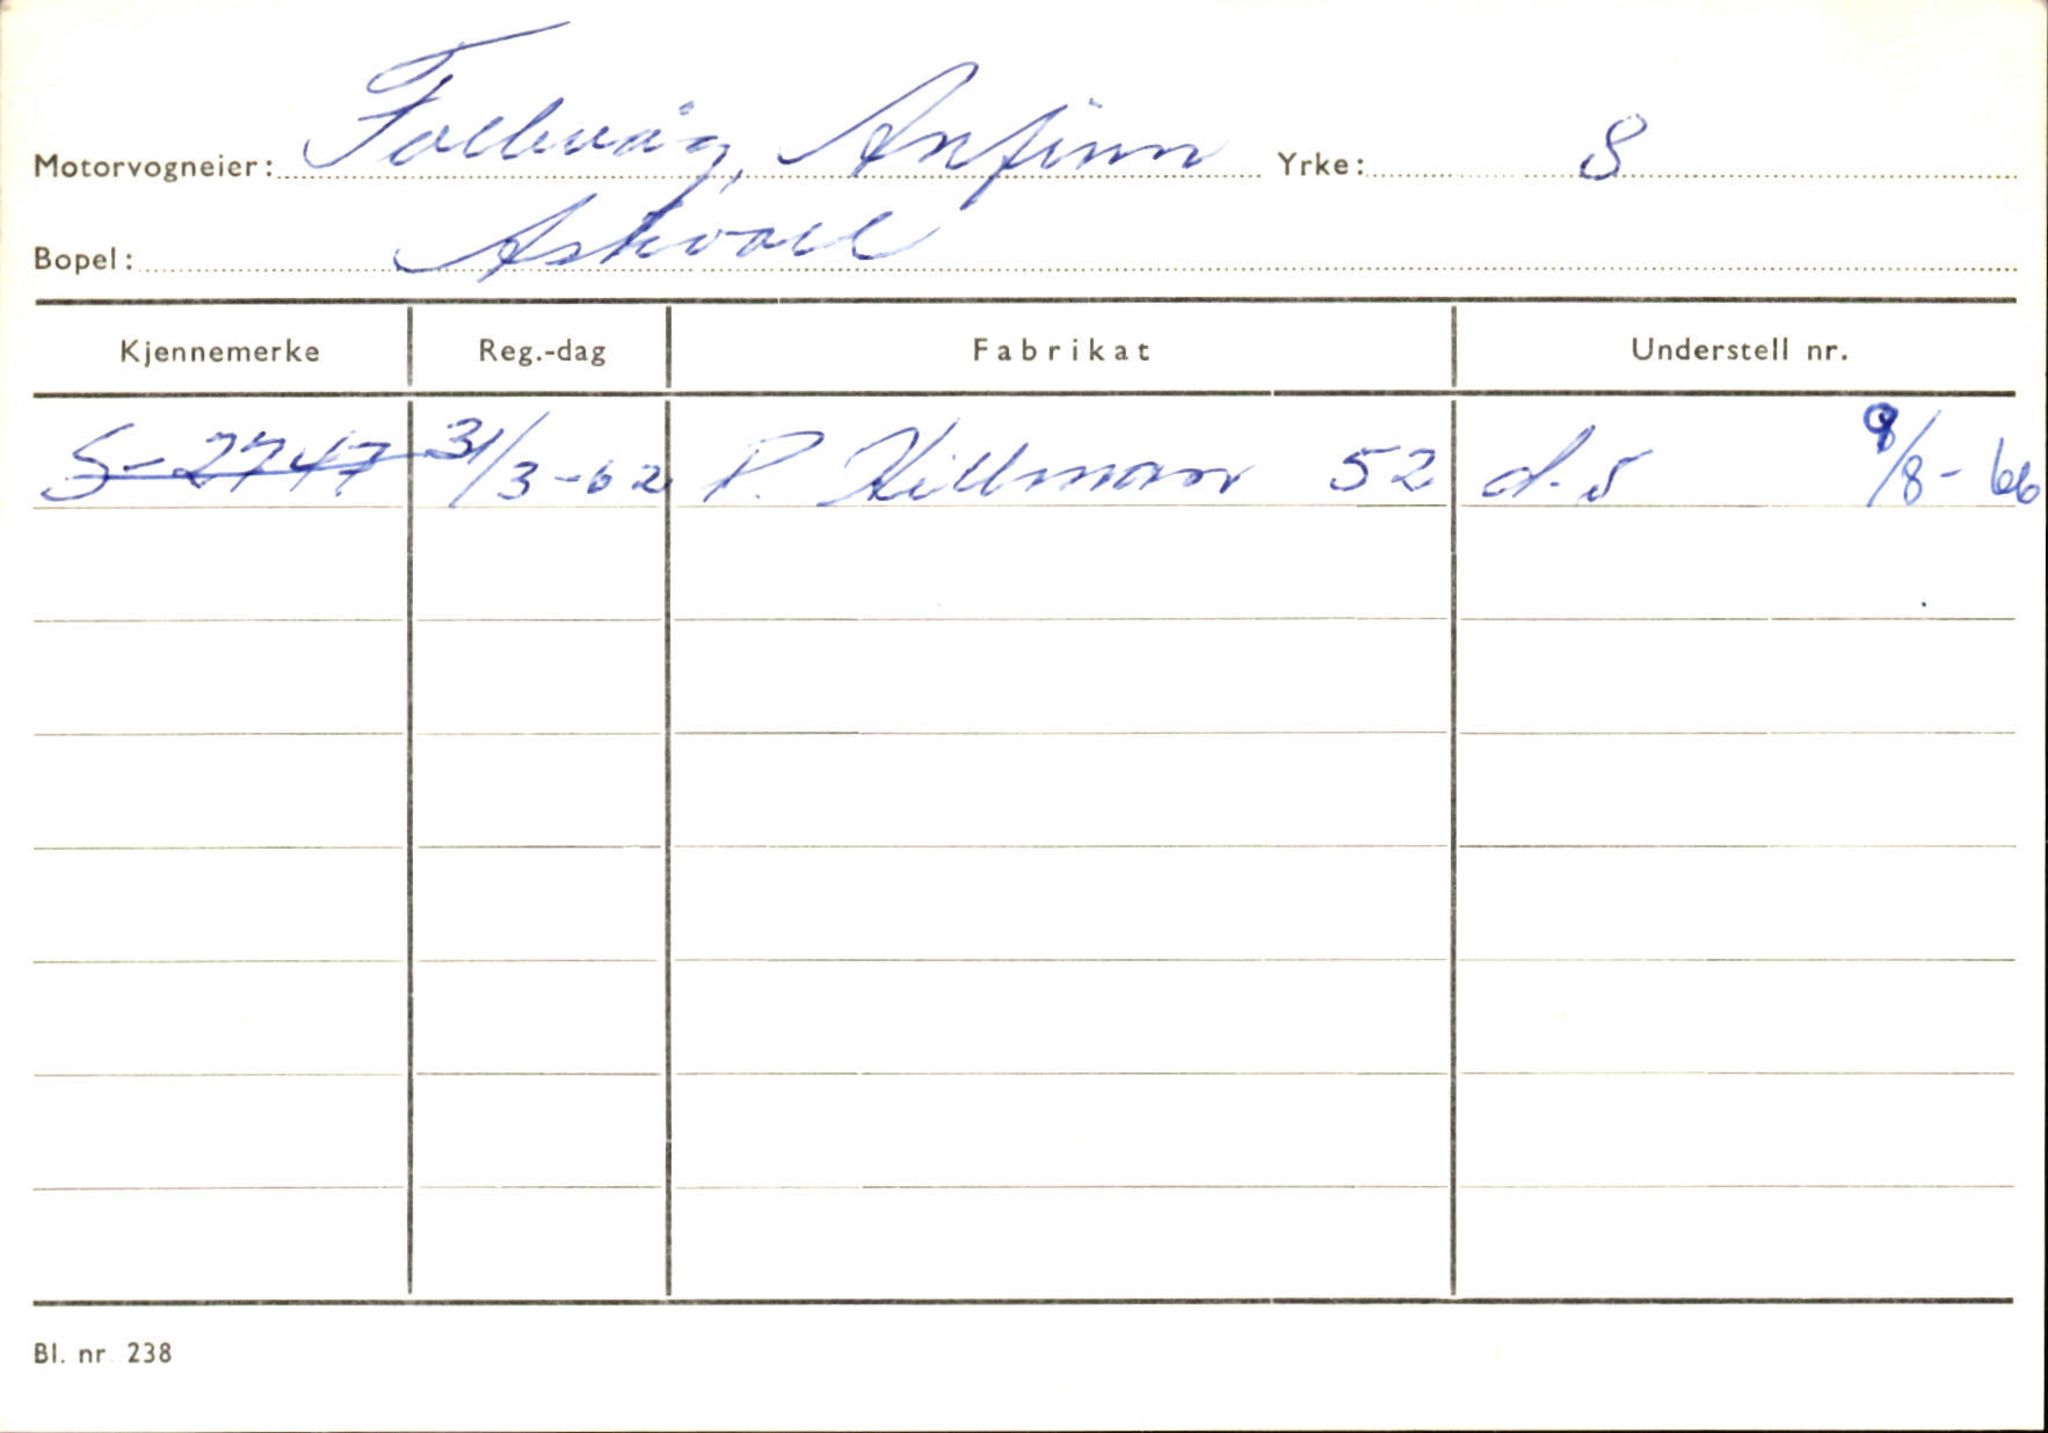 Motorvogneier: Follevåg, Anfinn Yrke: S
Bopel: Askvoll
Kjennemerke Reg.-dag Fabrikat Understell nr.
S-2747 31/3-62 P. Hillman 52 d.s 9/8-66
Bl. nr 238